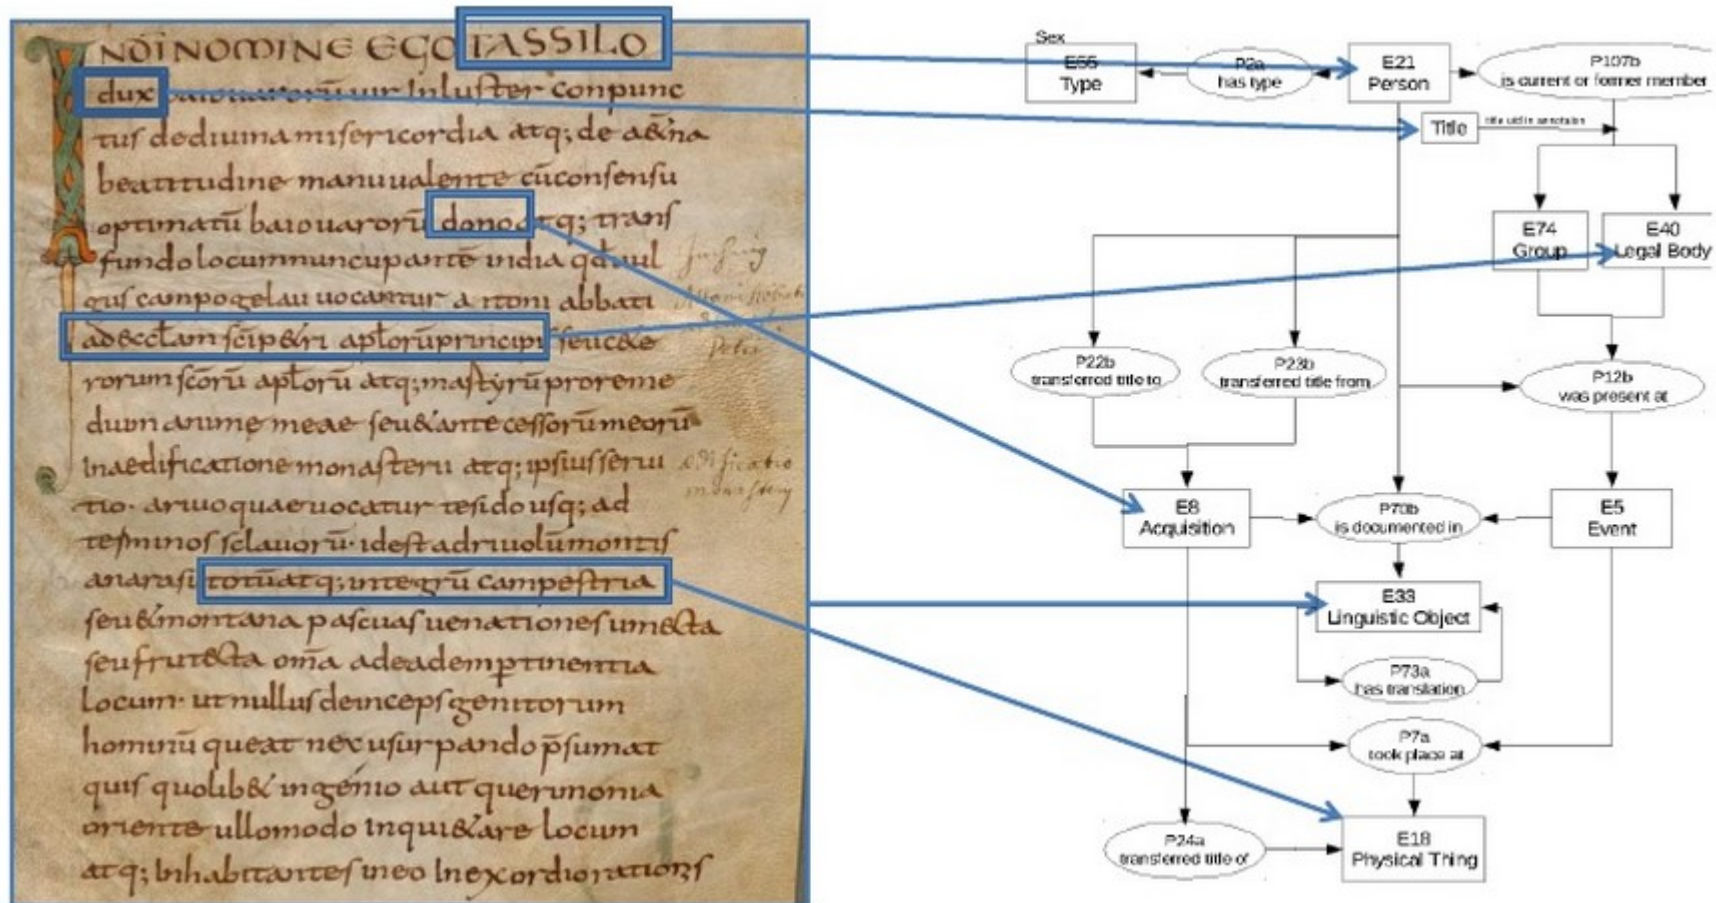 NDĪ NOMINE EGO TASSILO
dux baiouuarorū uir Inluster conpunc
tus dediuina misericordia atq; de a&̄na
beatitudine manu ualente cūconsensu
optimatū baiouuarorū dono atq; trans
fundo locum nuncupantē india qd uul
gus campogelau uocantur a ttoni abbati
ad ecclam sci p&ri aplorū principi seu c&e
rorum scōrū aplorū atq; martyrū pro reme
dium anime meae seu & ante cessorū meorū
In aedificatione monasterii atq; ipsius serui
tio. ariuo quae uocatur tesido usq; ad
terminos sclauorū. id est ad riuolū montis
anarasi totū atq; integrū campestria
seu & montana pascuas uenationes umecta
seu frutecta om̄a ad eadem ptinentia
Locum. ut nullus deinceps genitorum
hominū queat nec usurpando p̄sumat
quis quolib& ingenio aut querimonia
oriente ullo modo inqui&are locum
atq; Inhabitantes in eo In exordio rationis
edificatio
Sex
E55
Type
P2a
has type
E21
Person
P107b
is current or former member
Title
title uid in annotaion
E74
Group
E40
Legal Body
P22b
transferred title to
P23b
transferred title from
P12b
was present at
E8
Acquisition
P70b
is documented in
E5
Event
E33
Linguistic Object
P73a
has translation
P7a
took place at
P24a
transferred title of
E18
Physical Thing